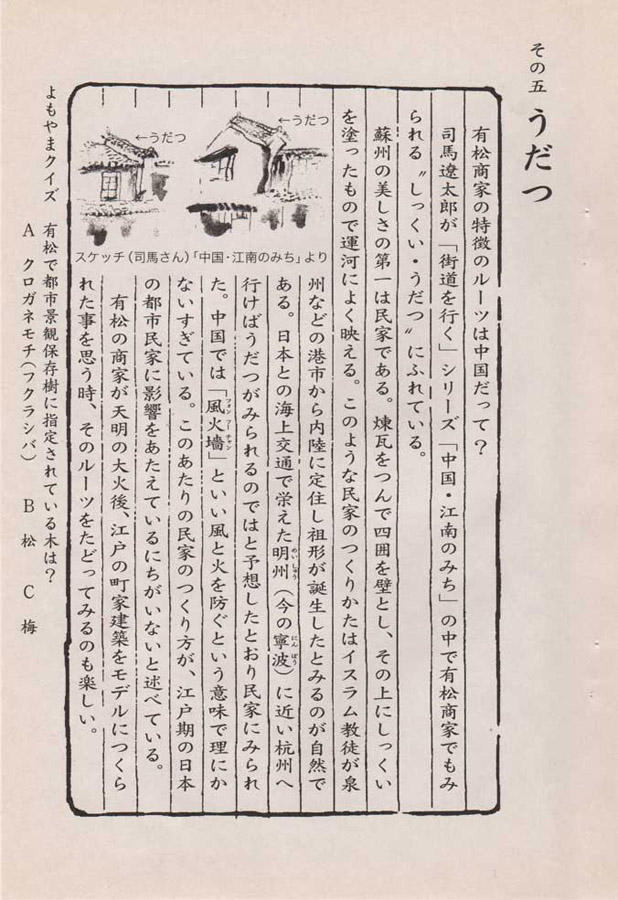 その五 うだつ
有松商家の特徴のルーツは中国だって？
司馬遼太郎が「街道を行く」シリーズ「中国・江南のみち」の中で有松商家でもみ
られる〝しっくい・うだつ〟にふれている。
蘇州の美しさの第一は民家である。煉瓦をつんで四囲を壁とし、その上にしっくい
を塗ったもので運河によく映える。このような民家のつくりかたはイスラム教徒が泉
州などの港市から内陸に定住し祖形が誕生したとみるのが自然で
ある。日本との海上交通で栄えた明州（今の寧波）に近い杭州へ
めいしゅう
にんぽう
行けばうだつがみられるのではと予想したとおり民家にみられ
た。中国では「風火墻」といい風と火を防ぐという意味で理にか
フォンフーチャン
ないすぎている。このあたりの民家のつくり方が、江戸期の日本
の都市民家に影響をあたえているにちがいないと述べている。
有松の商家が天明の大火後、江戸の町家建築をモデルにつくら
れた事を思う時、そのルーツをたどってみるのも楽しい。
←うだつ
←うだつ
スケッチ（司馬さん）「中国・江南のみち」より
よもやまクイズ 有松で都市景観保存樹に指定されている木は？
A クロガネモチ（フクラシバ） B 松 C 梅